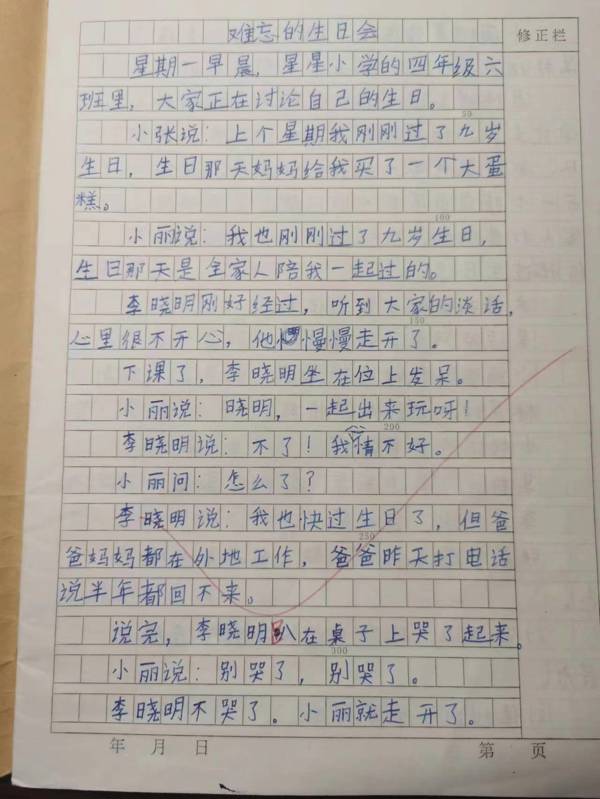 难忘的生日会
修正栏
星期一早晨，星星小学的四年级六
班里，大家正在讨论自己的生日。
50
小张说：上个星期我刚刚过了九岁
生日，生日那天妈妈给我买了一个大蛋
糕。
100
小丽说：我也刚刚过了九岁生日，
生日那天是全家人陪我一起过的。
李晓明刚好经过，听到大家的谈话，
150
心里很不开心，他慢慢走开了。
下课了，李晓明坐在位上发呆。
小丽说：晓明，一起出来玩呀！
200
李晓明说：不了！我情不好。
小丽问：怎么了？
李晓明说：我也快过生日了，但爸
250
爸妈妈都在外地工作，爸爸昨天打电话
说半年都回不来。
说完，李晓明趴在桌子上哭了起来。
300
小丽说：别哭了，别哭了。
李晓明不哭了。小丽就走开了。
年 月 日
第 页